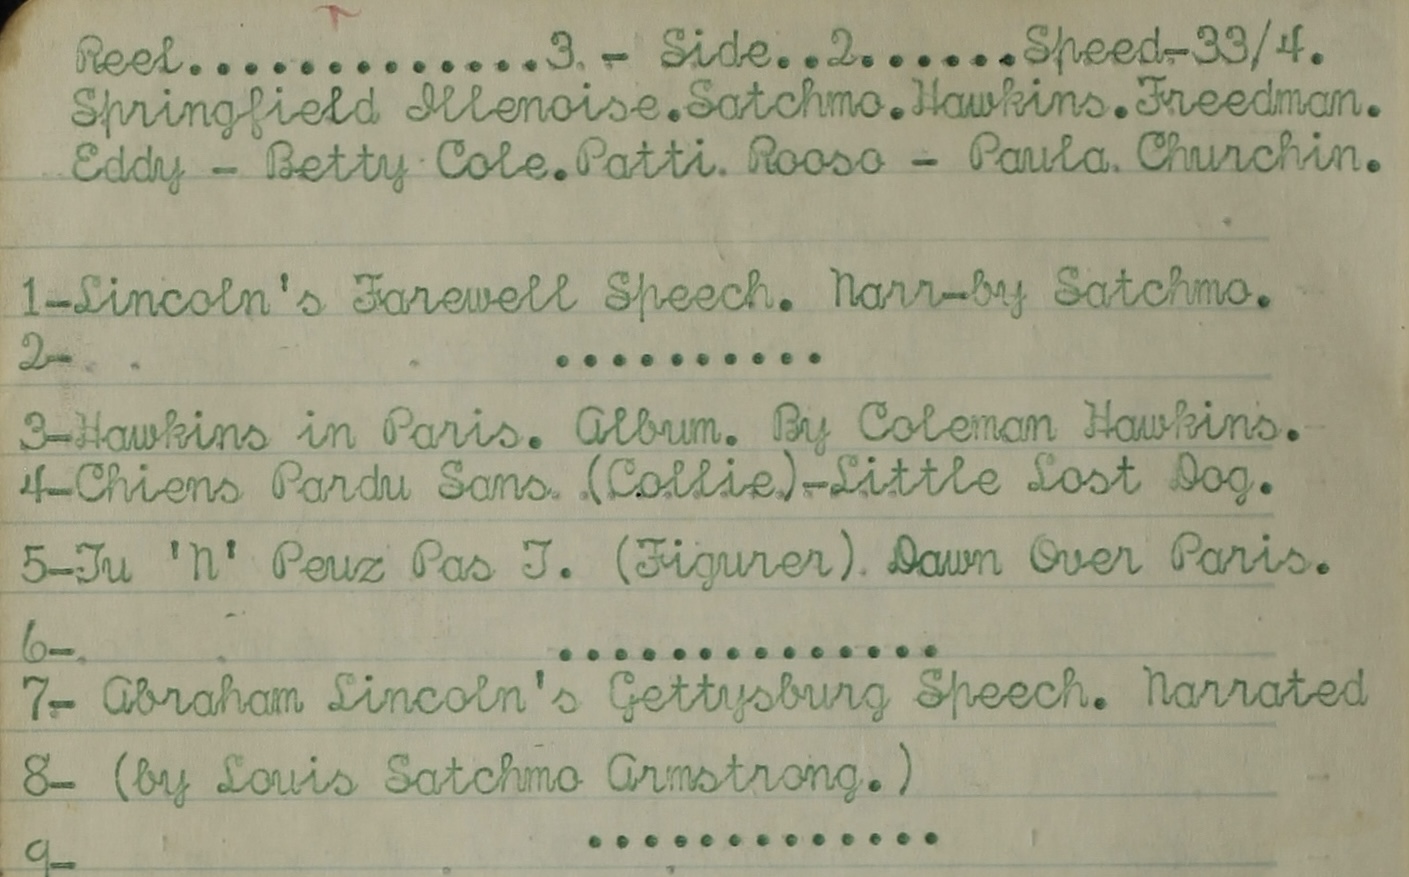 Reel...............3. - Side..2......Speed-33/4.
Springfield Illenoise.Satchmo.Hawkins.Freedman.
Eddy - Betty Cole.Patti. Rooso - Paula. Churchin.
1-Lincoln's Farewell Speech. Narr-by Satchmo.
2- ..........
3-Hawkins in Paris. Album. By Coleman Hawkins.
4-Chiens Pardu Sans. (Collie)-Little Lost Dog.
5-Tu 'N' Peuz Pas T. (Figurer). Dawn Over Paris.
6- ..............
7- Abraham Lincoln's Gettysburg Speech. Narrated
8- (by Louis Satchmo Armstrong.)
9- .............